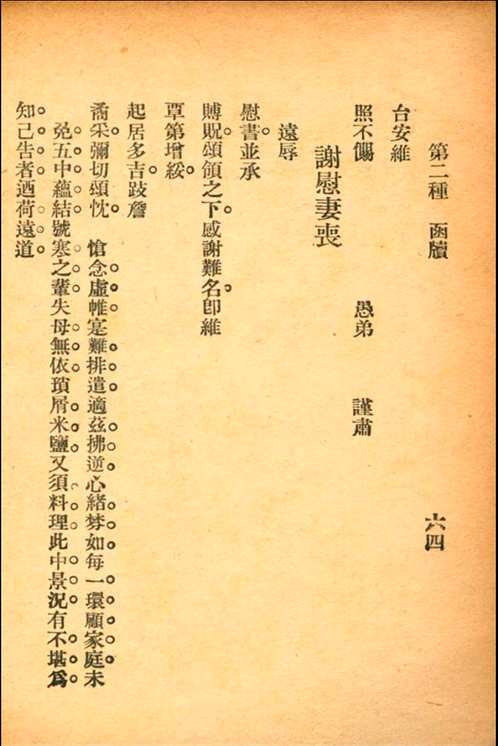 第二種　函牘　六四
台安維
照不儩　愚弟　謹肅
謝慰妻喪
遠辱
慰書並承
賻貺頌領之下感謝難名卽維
覃第增綏
起居多吉跂詹
矞采彌切頌忱　愴念虛帷寔難排遣適茲拂逆心緒棼如每一環顧家庭未
免五中蘊結號寒之輩失母無依瑣屑米鹽又須料理此中景況有不堪爲
知己告者迺荷遠道